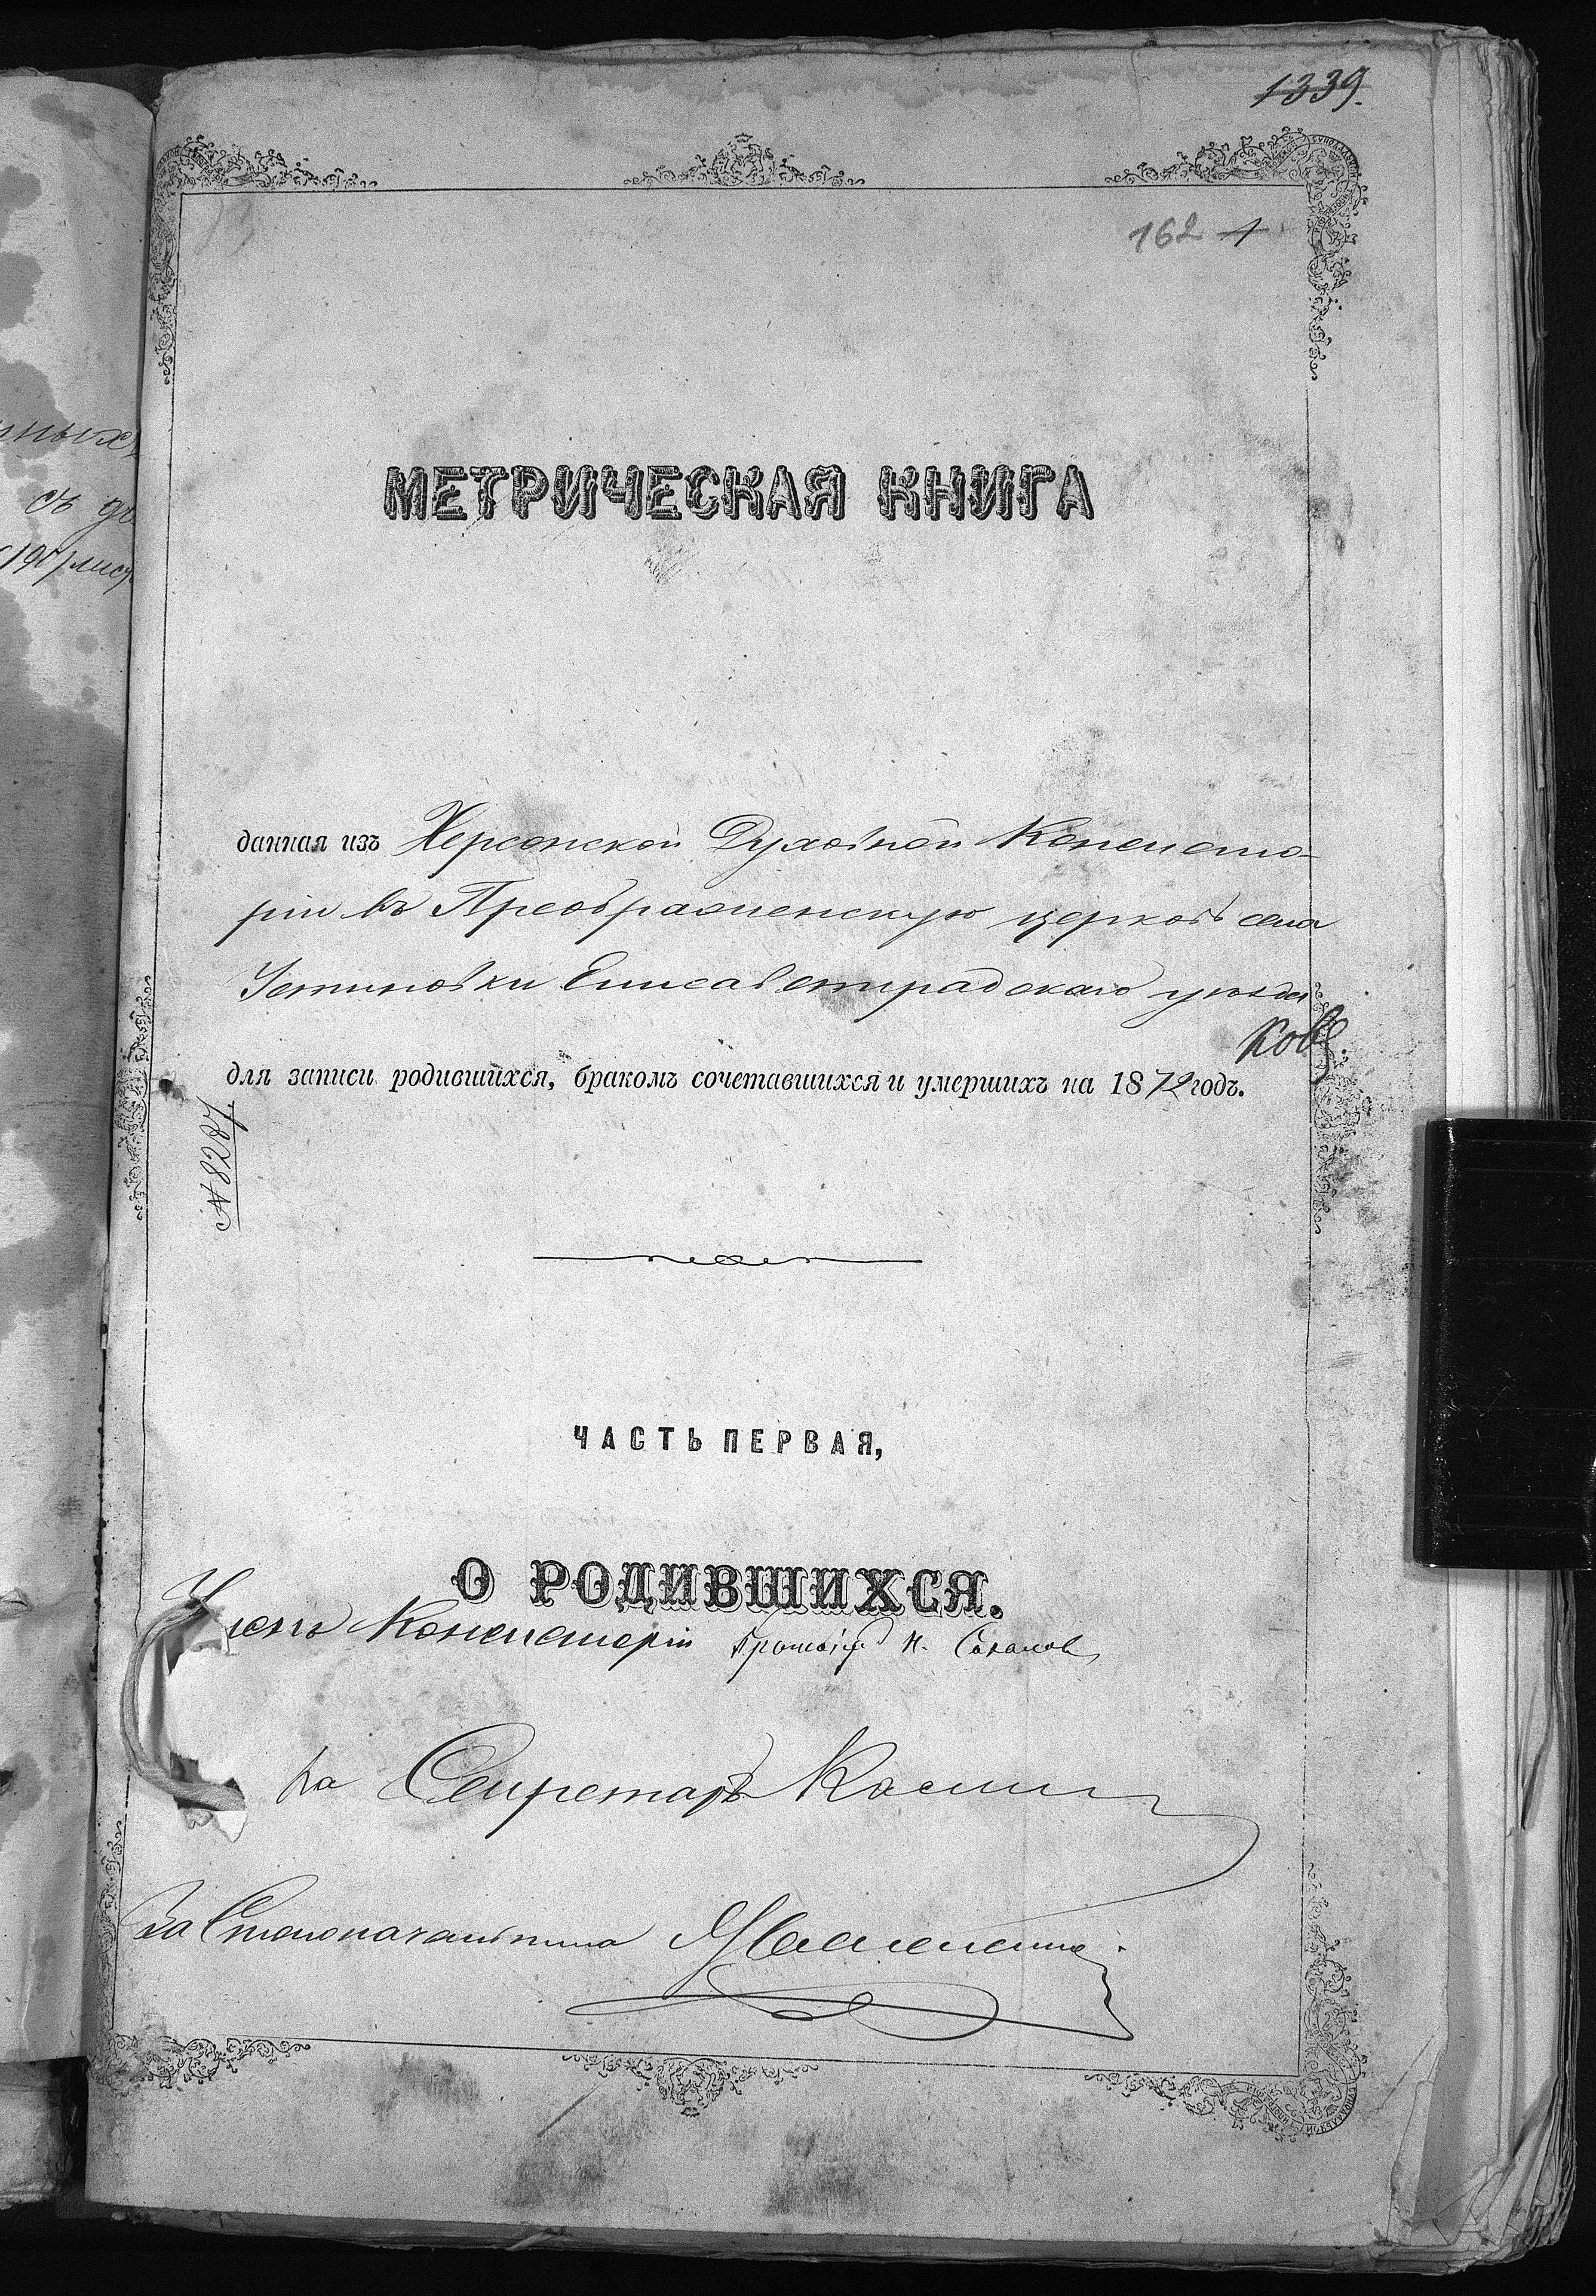 1339.
162 1
МЕТРИЧЕСКАЯ КНИГА
данная изъ Херсонской Духовной Консисто-
ріи въ Преображенскую церковь села
Устиновки Елисаветградскаго уѣзда
для записи родившихся, бракомъ сочетавшихся и умершихъ на 1872 годъ.
ЧАСТЬ ПЕРВАЯ,
О РОДИВШИХСЯ.
Членъ Консисторіи Протоіерей Н. Соколов
За Секретаря
За Столоначальника